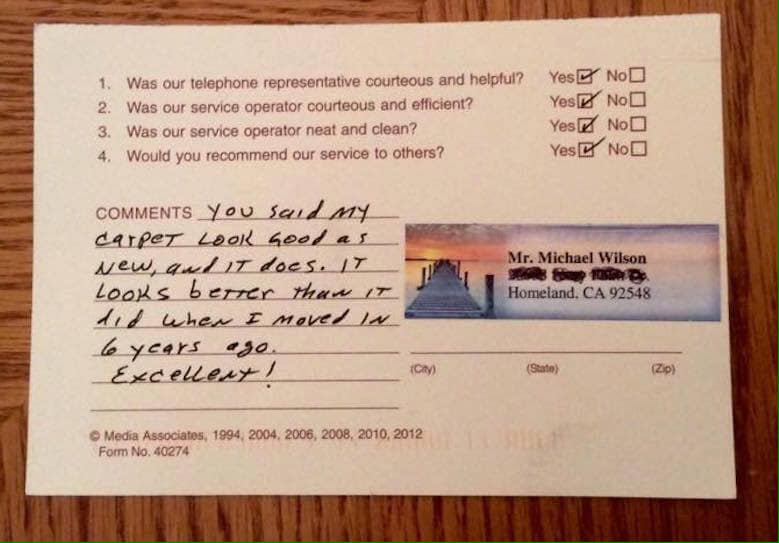 1. Was our telephone representative courteous and helpful? Yes No
2. Was our service operator courteous and efficient? Yes No
3. Was our service operator neat and clean? Yes No
4. Would you recommend our service to others? Yes No
COMMENTS You said my
carpet look good as
new, and it does. It
looks better than it
did when I moved in
6 years ago.
Excellent!
Mr. Michael Wilson
Homeland, CA 92548
(City) (State) (Zip)
© Media Associates, 1994, 2004, 2006, 2008, 2010, 2012
Form No. 40274